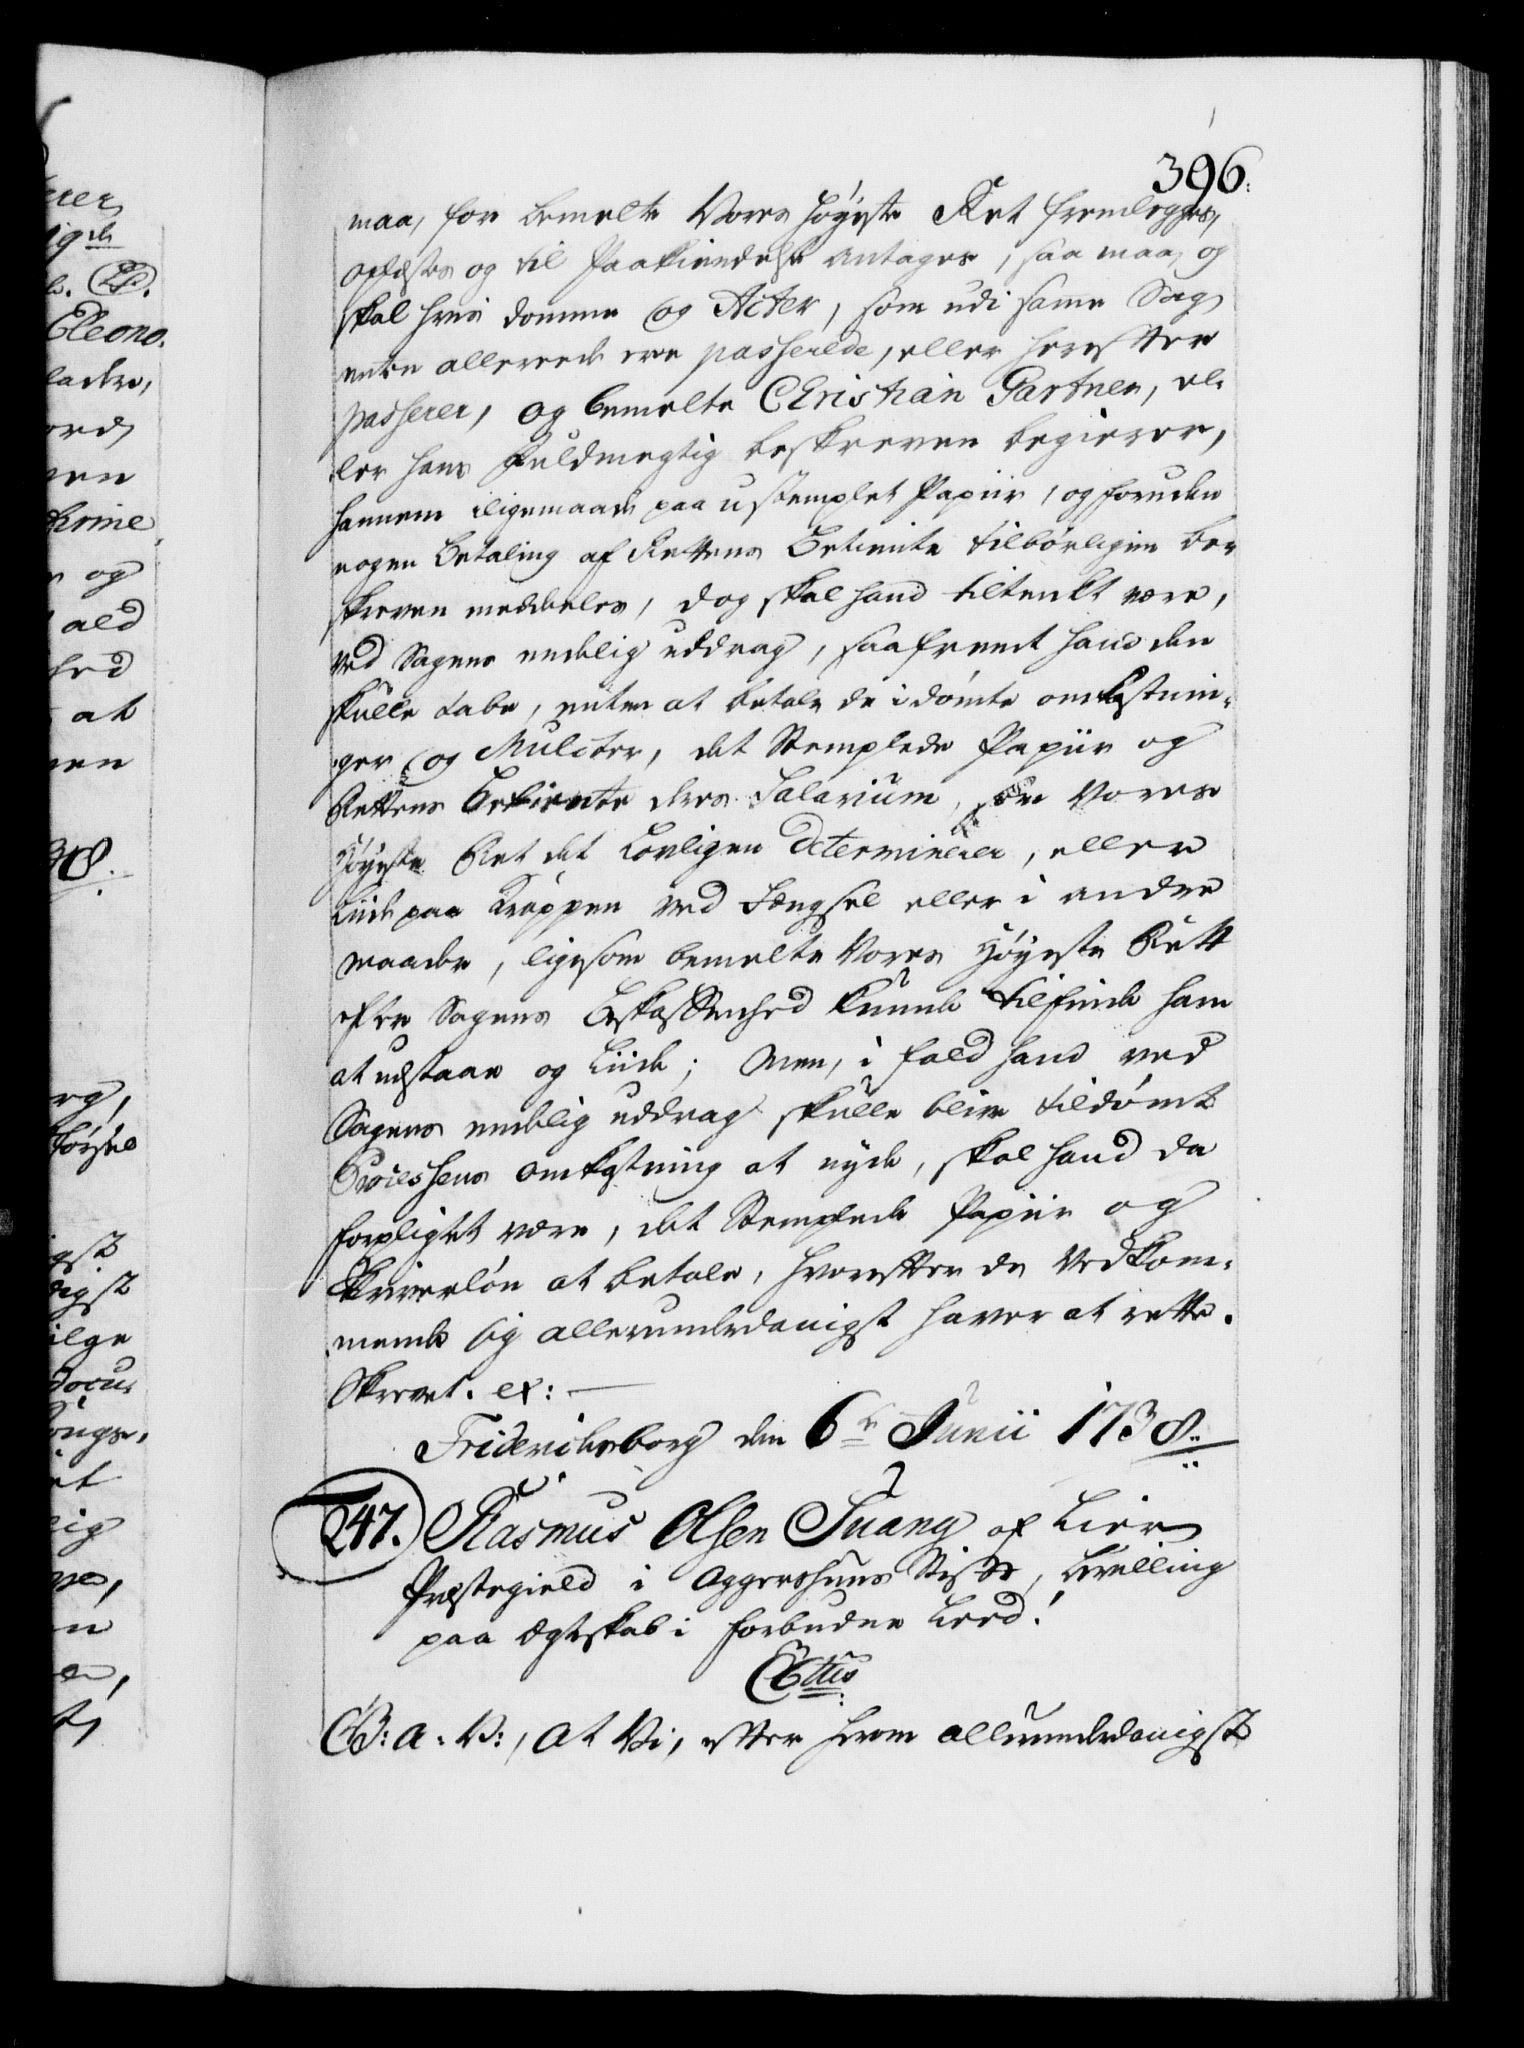 396.
maa, for bemelte Vores Høyeste Ret fremlegges,
oplæses og til Paakiendelse antages, saa maa og
skal hvis domme og Acter, som udi samme Sag
enten allereede ere passerede, eller herefter
passerer, og bemelte Christian Gartner, el-
ler hans fuldmegtig beskreven begierer,
hannem iligemaade paa ustemplet Papiir, og foruden
nogen betaling af Rettens Betiente tilbørligen be-
skreven meddeeles, dog skal hand tiltenkt være,
ved Sagens endelig uddrag, saafremt hand den
skulle tabe, enten at betale de idømte omkostnin-
ger og Mulcter, det Stemplede Papiir og
Rettens Betiente deres Salarium, som Vores
Høyeste Ret det lovligen determinerer, eller
liide paa Kroppen ved Fængsel eller i andre
maader, ligesom bemelte Vores Høyeste Rett
efter Sagens Beskaffenhed kunde tilfinde ham
at udstaae og liide; Men, i fald hand ved
Sagens endelig uddrag skulle blive tildømt
Processens omkostning at nyde, skal hand da
forpligtet være, det Stemplede Papiir og
Skriverløn at betale, hvorefter de Vedkom-
mende sig allerunderdanigst haver at rette.
Skrevet. ex:
Friderichsborg den 6te Junii 1738.
247. Rasmus Olsen Tuang af Lier
Præstegield i Aggershuus Stift, bevilling
paa Ægteskab i forbuden Leed.
C6tus
G: a: V:, at Vi, efter herom allerunderdanigst